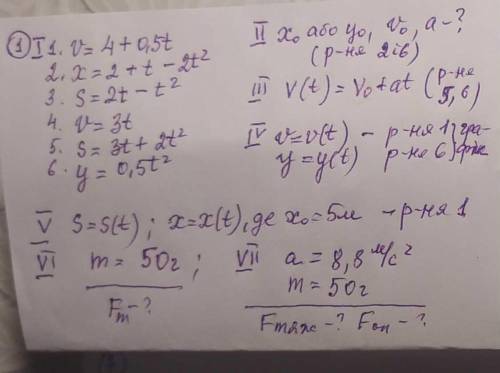 ① I 1. v = 4 + 0,5t
2. x = 2 + t - 2t²
3. s = 2t - t²
4. v = 3t
5. s = 3t + 2t²
6. y = 0,5t²
II x₀ або y₀, v₀, a - ?
(р-ня 2і6)
III v(t) = v₀ + at (р-ня
5, 6)
IV v = v(t) - р-ня 1 } гра-
y = y(t) р-ня 6 } фіки
V s = s(t); x = x(t), де x₀ = 5м - р-ня 1
VI m = 50г;
Fт - ?
VII a = 8,8 м/с²
m = 50г
Fтяж - ? Fоп - ?